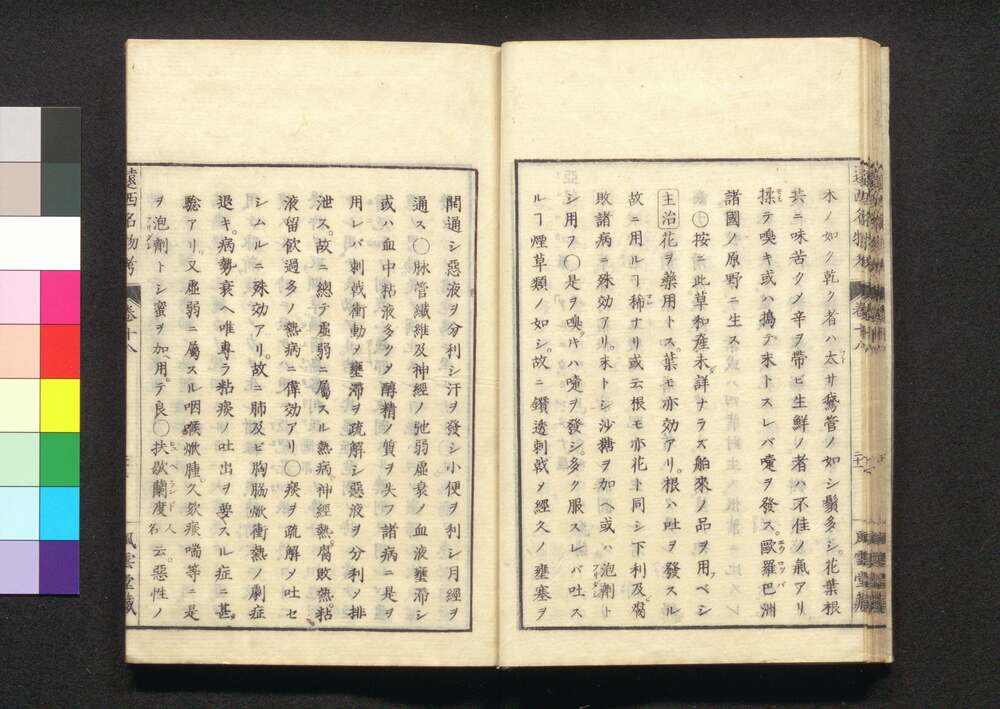 水ノ如ク乾ク者ハ太サ鵞管ノ如シ鬚多シ。花葉根
共ニ味苦クメ辛ヲ帶ビ生鮮ノ者ハ不佳ノ氣アリ
揉テ嗅キ或ハ搗テ末トスレバ嚏ヲ發ス。歐羅巴洲
諸國ノ原野ニ生ス
㊉按ニ此草和產未詳ナラズ舶來ノ品ヲ用ベシ
主治 花ヲ藥用トス。葉モ亦効アリ。根ハ吐ヲ發スル
故ニ用ルヿ稀ナリ或云根モ亦花ト同シ下利及腐
敗諸病ニ殊効アリ。末トシ沙糖ヲ加ヘ或ハ泡劑ト
シ用フ○是ヲ嗅キハ嚏ヲ發シ。多ク服スレバ吐ス
ルヿ煙草類ノ如シ。故ニ鑽透刺戟メ經久ノ壅塞ヲ
遠西名物考 卷十八 風雲堂藏
開通シ惡液ヲ分利シ汗ヲ發シ小便ヲ利シ月經ヲ
通ス○脉管纖維及神經ノ弛弱虛衰ノ血液壅滯シ
或ハ血中粘液多クメ酷精ノ質ヲ失フ諸病ニ是ヲ
用レバ刺戟衝動メ壅滯ヲ疏解シ惡液ヲ分利メ排
泄ス。故ニ總テ虛弱ニ屬スル熱病神經熱。腐敗熱。粘
液留飲過多ノ熱病ニ偉効アリ○痰ヲ疏解メ吐セ
シムルニ殊効アリ。故ニ肺及ビ胸腦焮衝熱ノ劇症
退キ。病勢衰ヘ唯專ラ粘痰ノ吐出ヲ要スル症ニ甚
驗アリ。又虛弱ニ屬スル咽喉焮腫。久欬痰喘等ニ是
ヲ泡劑トシ蜜ヲ加用テ良○扶歇蘭度 人名 云。惡性ノ
遠西名物考 卷十八 風雲堂藏